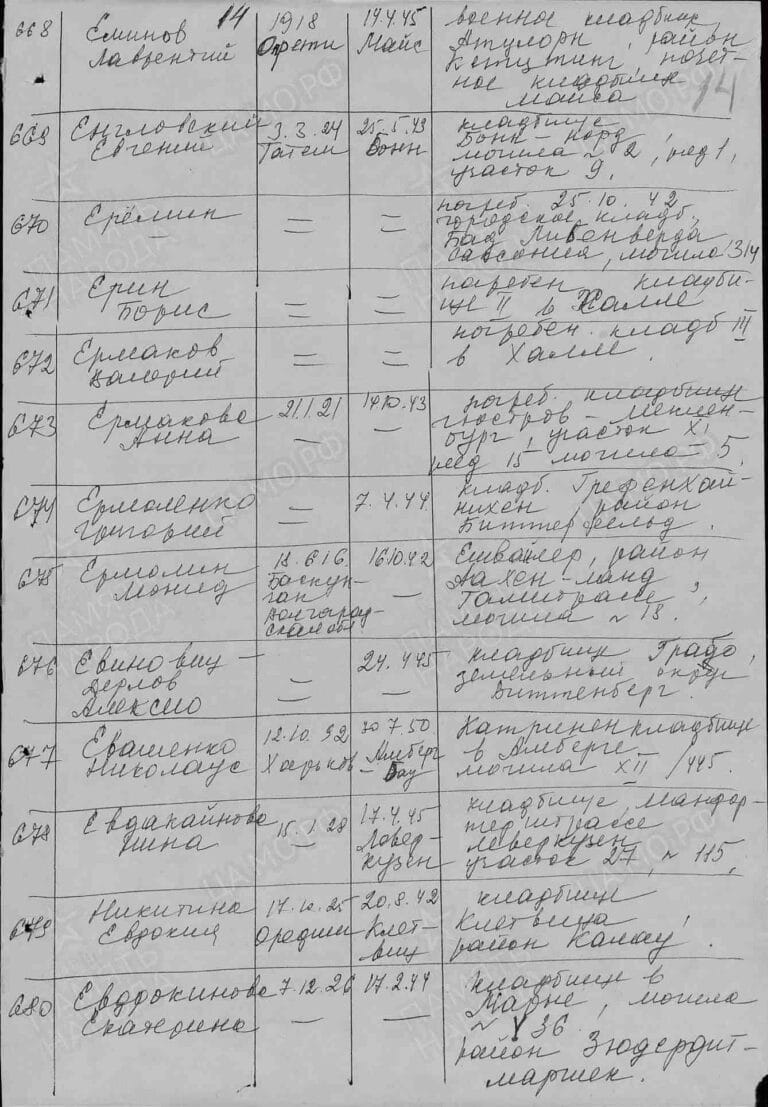 14
668 Еминов Лаврентий 1918 Орети 14.4.45 Майс военное кладбище
Атулорн, район
Кетцтинг, почет-
ное кладбище
Мойса
14
669 Енгловский Евгений 3.3.24 Татем 25.5.43 Бонн кладбище
Бонн - норд,
могила ~ 2, ряд 1,
участок 9.
670 Ерёмин — = = погреб. 25.10.42
городское кладб.,
Бад Либенверда
Саксония, могила 314
671 Ерин Борис = = погребен кладби-
ще II в Халле
672 Ермаков Валерий = = погребен. кладб III
в Халле.
673 Ермакова Анна 21.1.21 — 14.10.43 — погреб. кладбище
Гюстров - Меклен-
бург, участок XI
ряд 15 могила 5.
674 Ермоленко Григорий = 7.4.44 — кладб. Греденхай-
нихен, район
Биттерфельд.
675 Ермолин Монид 18.6.16. Баскун-
чак
Волгоград-
ской обл 16.10.42 — Ешвайлер, район
Аахен-Ланд
могила ~ 13.
676 Евинович —
Дерлов
Алексио = 24.4.45 — кладбище Грабо,
земельный округ
Виттенберг.
677 Евашенко Николаус 12.10.92 Харьков 30.7.50 Амберг - Бау Катриненкладбище
в Амберге
могила XII /445.
678 Евдакайнова Нина 15.1.28 — 17.4.45 Левер-
кузен кладбище, Мандор-
терштрассе
Леверкузен
участок 27, ~ 115,
679 Никитина Евдокия 17.10.25 Оредии 20.8.42 Клет-
виц кладбище
Клетвица,
район Калау.
680 Евдокинова Екатерина 7.12.26 — 17.2.44 — кладбище в
Марне, могила
~ 36.
район Зюдердит-
маршен.